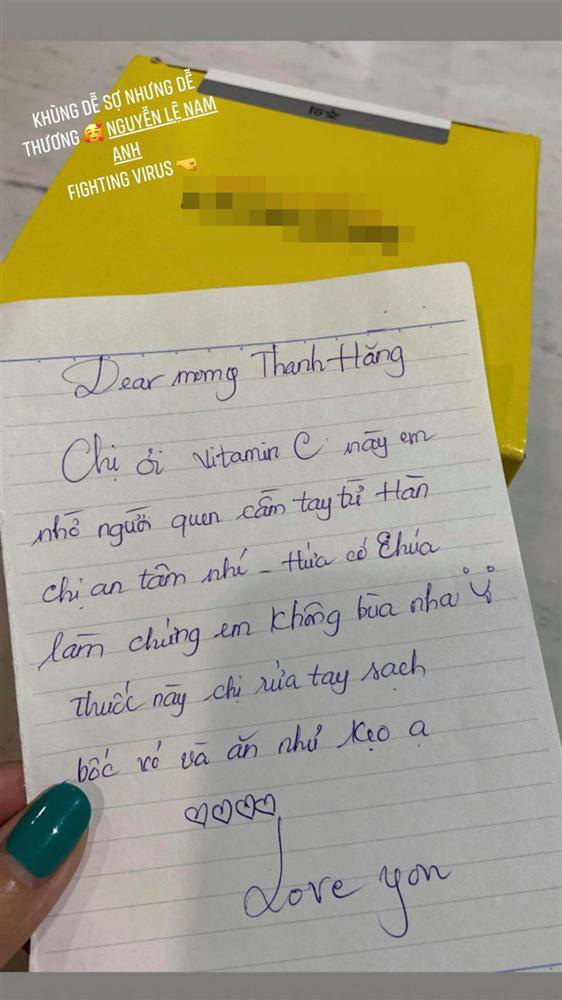 KHÙNG DỄ SỢ NHƯNG DỄ
THƯƠNG 🥰 NGUYỄN LỆ NAM
ANH
FIGHTING VIRUS 🤜
Dear momy Thanh Hằng
Chị ơi Vitamin C này em
nhờ người quen cầm tay từ Hàn
chị an tâm nhé - Hứa có Chúa
làm chứng em không bùa nha
Thuốc này chị rửa tay sạch
bóc vỏ và ăn như kẹo ạ
♡♡♡♡
Love you